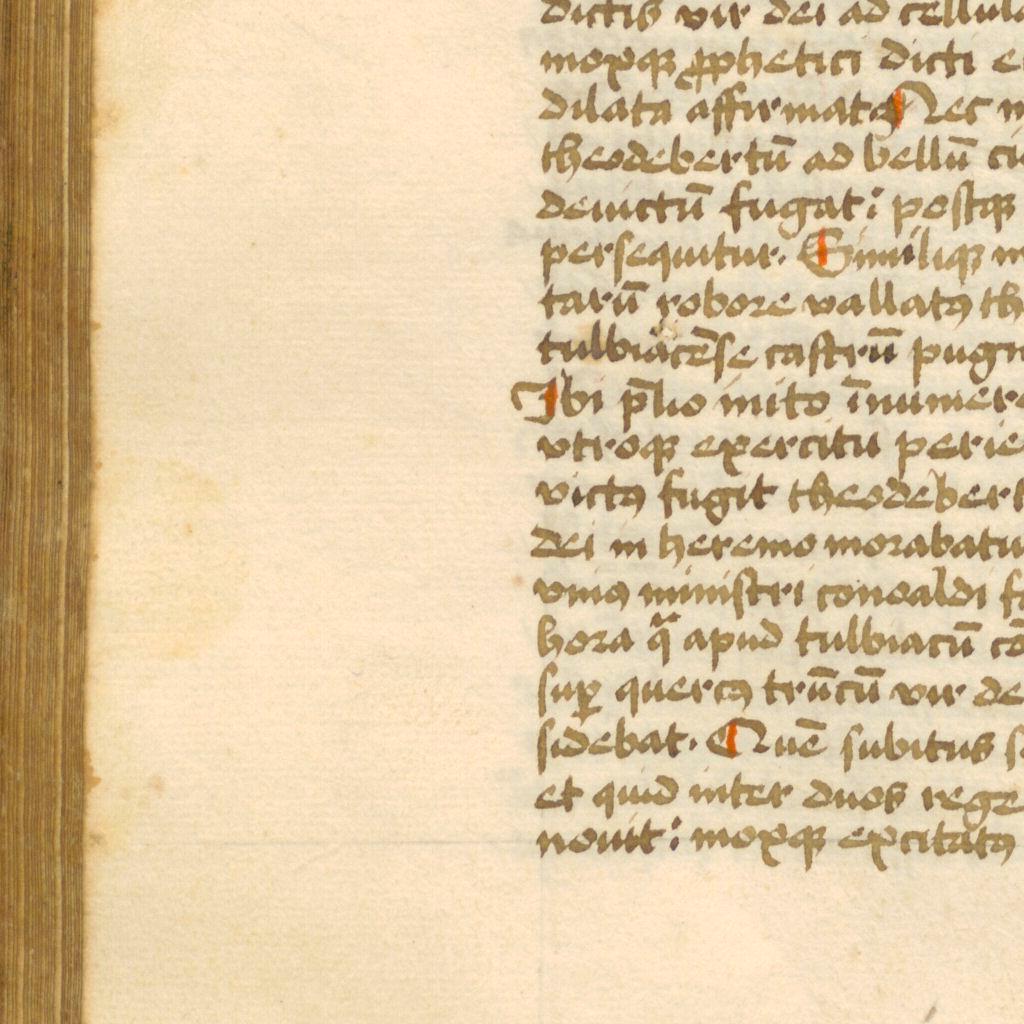 dictis vir dei ad cellula
moxq₃ ꝓphetici dicti e
dilata affirmatꝯ Nec m
theodebertū ad bellū ci
deuictū fugat: postq₃
persequitur. Similiq₃ m
tarū robore vallatꝯ th
tulbiacēse castrū pugn
Ibi p̄lio inito īnumer
vtroq₃ exercitu perie
victꝯ fugit theodebert
dei in heremo morabatu
vniꝯ ministri conoaldi f
hora qͣ apud tulbiacū cō
suꝑ quercꝯ trūcū vir de
sidebat. Quē subitus s
et quid inter duos rege
nouit: moxq₃ excitatꝯ